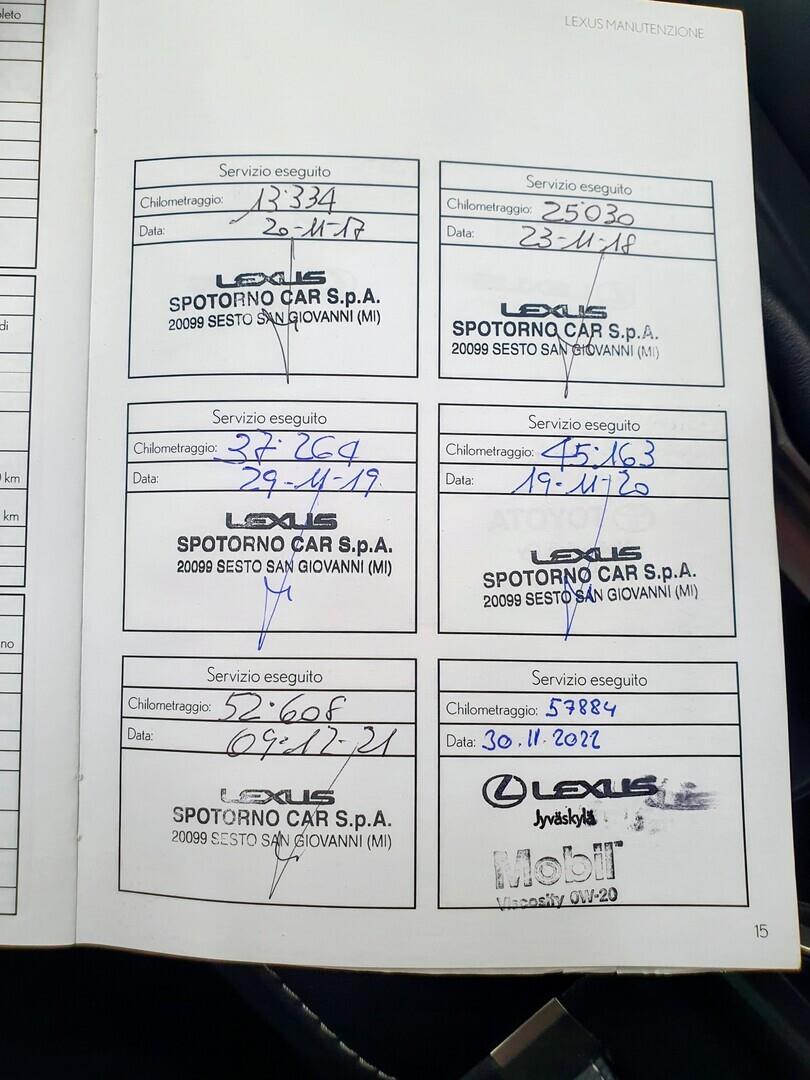 leto
LEXUS MANUTENZIONE
Servizio eseguito
Chilometraggio: 13.334
Data: 20-11-17
LEXUS
SPOTORNO CAR S.p.A.
20099 SESTO SAN GIOVANNI (MI)
Servizio eseguito
Chilometraggio: 25030
Data: 23-11-18
LEXUS
SPOTORNO CAR S.p.A.
20099 SESTO SAN GIOVANNI (MI)
di
Servizio eseguito
Chilometraggio: 37.264
Data: 29-11-19
LEXUS
SPOTORNO CAR S.p.A.
20099 SESTO SAN GIOVANNI (MI)
Servizio eseguito
Chilometraggio: 45.163
Data: 19-11-20
LEXUS
SPOTORNO CAR S.p.A.
20099 SESTO SAN GIOVANNI (MI)
km
km
no
Servizio eseguito
Chilometraggio: 52.608
Data: 09-12-21
LEXUS
SPOTORNO CAR S.p.A.
20099 SESTO SAN GIOVANNI (MI)
Servizio eseguito
Chilometraggio: 57884
Data: 30.11.2022
LEXUS
Jyväskylä
Mobil
Viscosity 0W-20
15